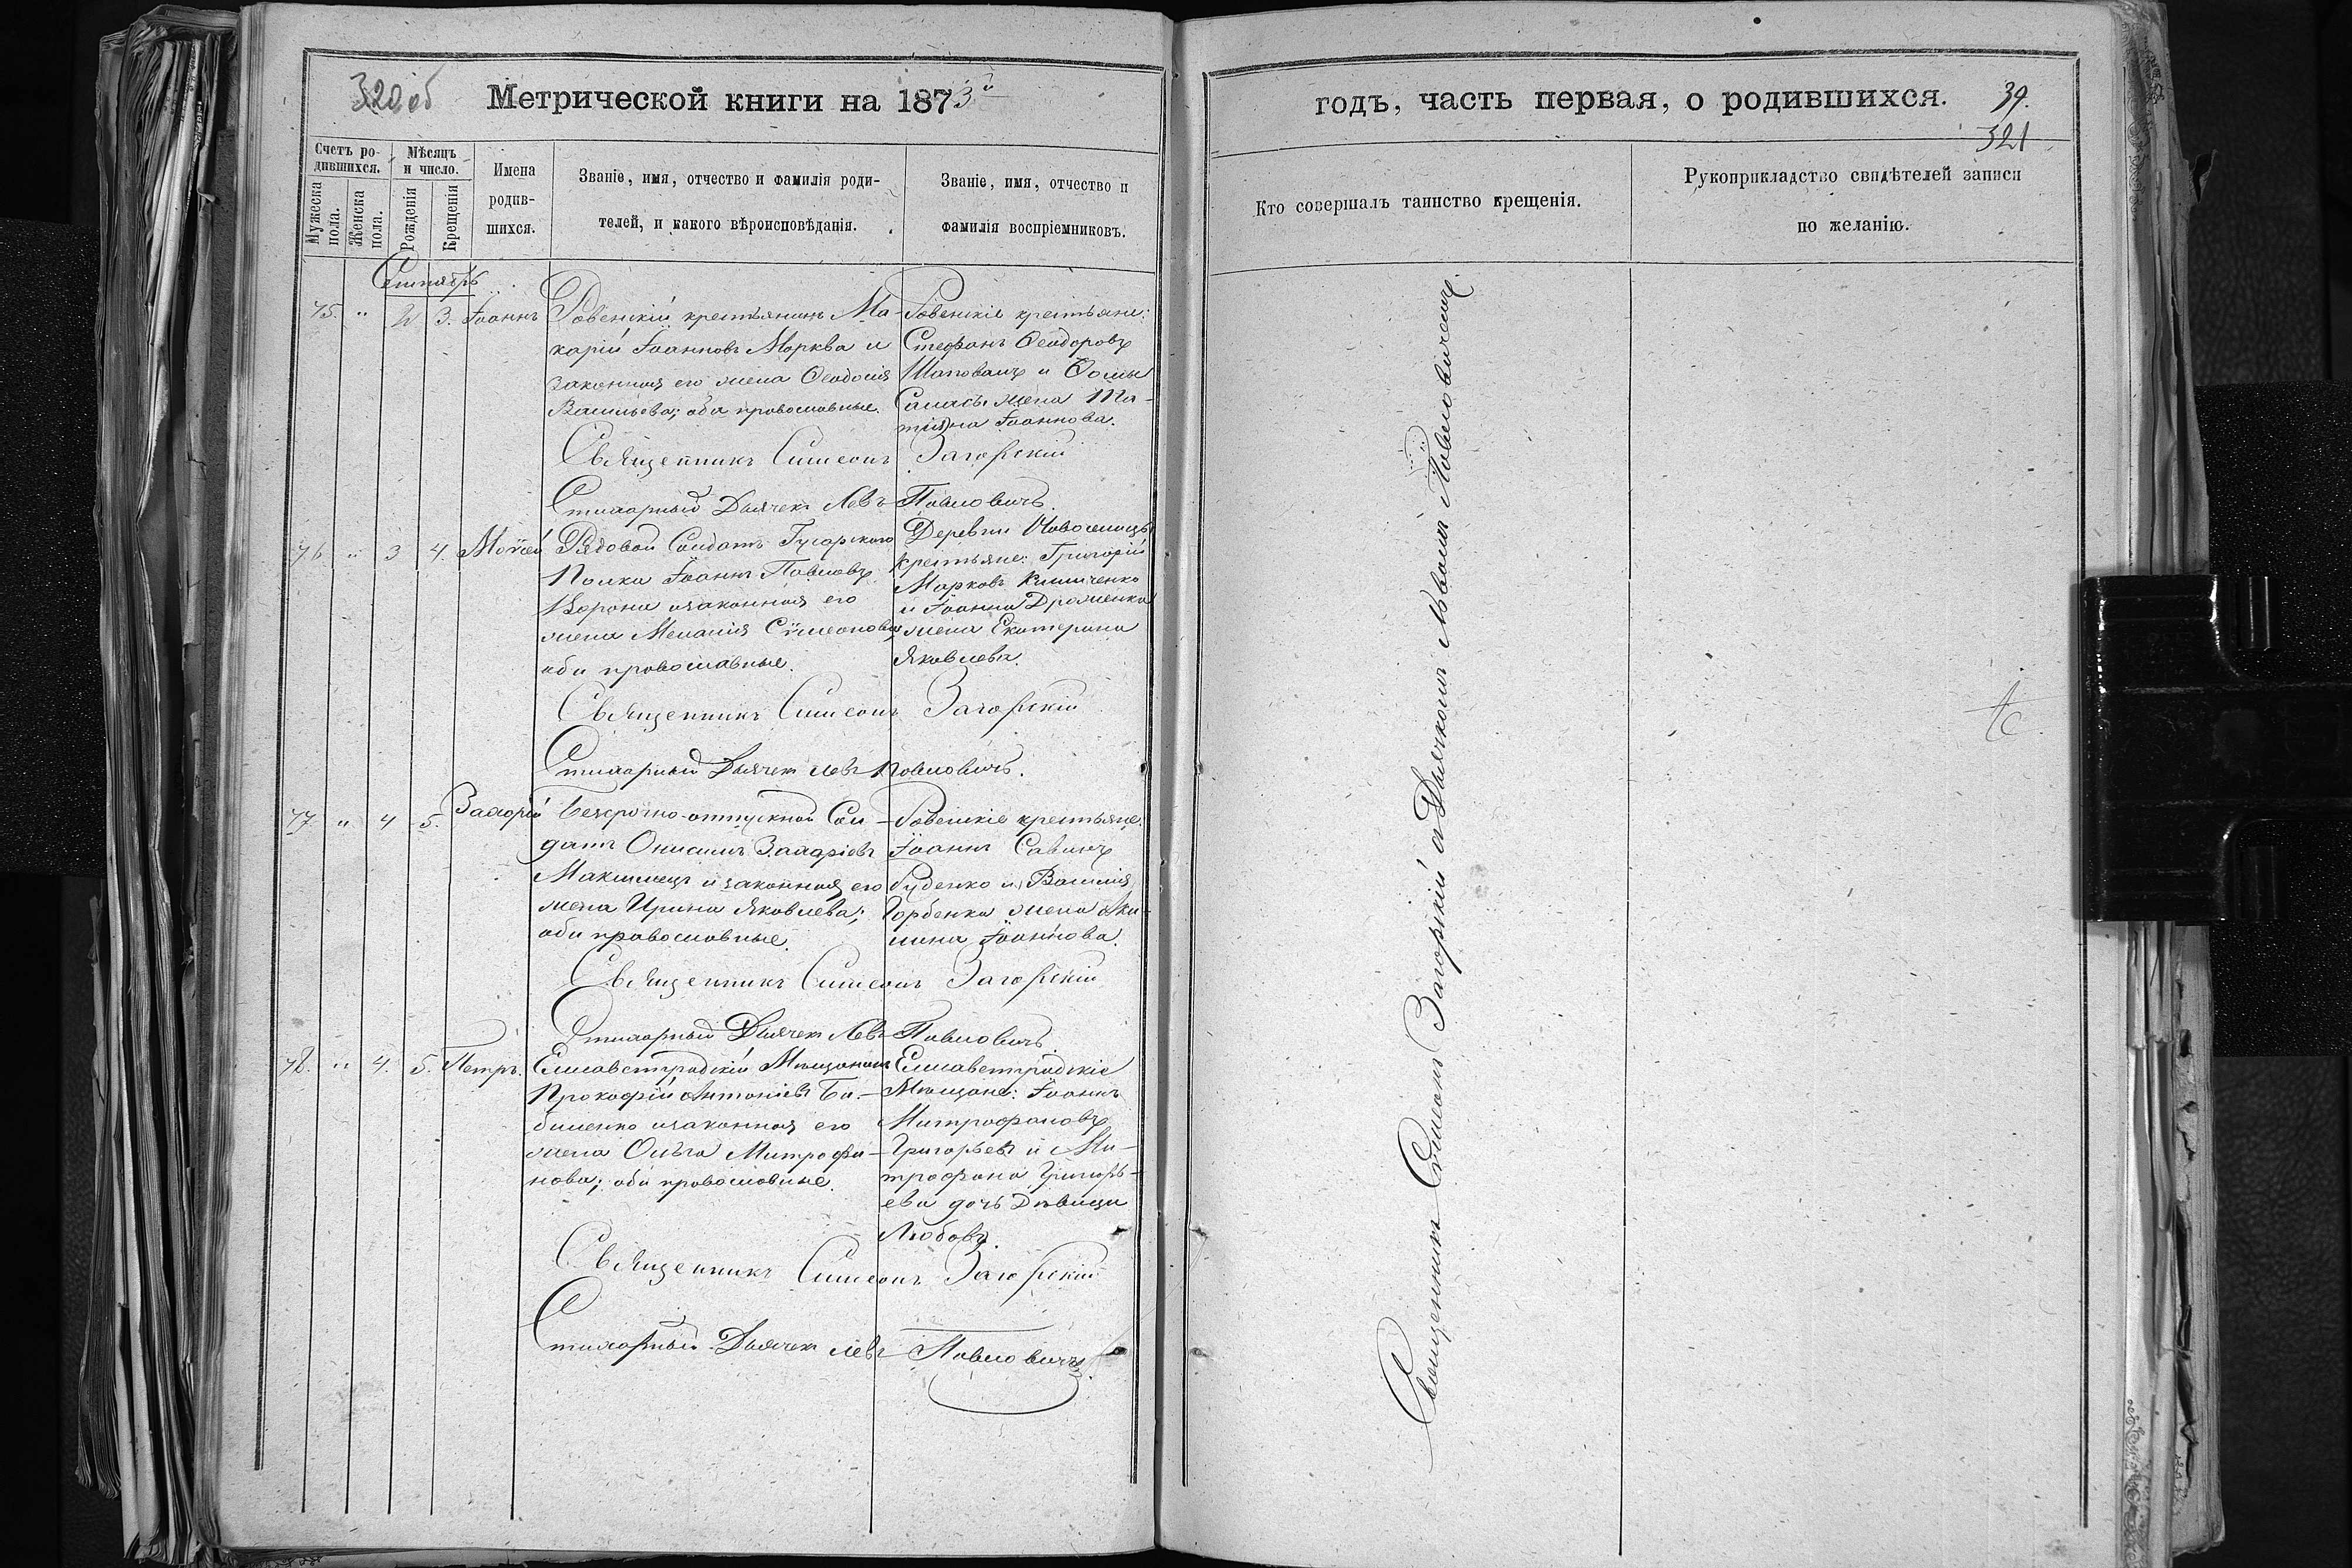 320 об
Метрической книги на 1873й
годъ, часть первая, о родившихся.
39.
321
Счетъ родившихся.
Мѣсяцъ и число.
Имена родившихся.
Званіе, имя, отчество и фамилія родителей, и какого вѣроисповѣданія.
Званіе, имя, отчество и фамилія воспріемниковъ.
Мужеска пола.
Женска пола.
Рожденія
Крещенія
Кто совершалъ таинство крещенія.
Рукоприкладство свидѣтелей записи
по желанію.
Сентябрь
75. " 2 3. Іоаннъ
Ровенскій крестьянинъ Ма-
карій Іоанновъ Морква и
законная его жена Ѳеодосія
Васильева; оба православные.
Ровенскіе крестьяне:
Стефанъ Ѳеодоровъ
Шаповалъ и Ѳомы
жена Та-
тіяна Іоаннова.
Священникъ Симеонъ Загорскій
Стихарный Дьячекъ Левъ Павловичъ.
76 " 3 4. Моѵсей
Рядовой Солдатъ Гусарскаго
Полка Іоаннъ Павловъ
Ворона и законная его
жена Меланія Сѵмеонова
оба православные.
Деревни
крестьяне: Григорій
Марковъ Климченко
и Іоанна
жена Екатерина
Яковлева.
Священникъ Симеонъ Загорскій
Стихарный Дьячекъ Левъ Павловичъ.
77 " 4 5. Захарій
Безсрочно-отпускной Сол-
датъ Онисимъ Захаріевъ
Максимецъ и законная его
жена Ирина Яковлева;
оба православные.
Ровенскіе крестьяне:
Іоаннъ Савинъ
Руденко и Василія
Горбенка жена Аки-
лина Іоаннова.
Священникъ Симеонъ Загорскій
Стихарный Дьячекъ Левъ Павловичъ.
78. " 4. 5. Петръ.
Елисаветградскій Мѣщанинъ
Прокофій Антоніевъ Ба-
биленко и законная его
жена Ольга Митрофа-
нова; оба православные.
Елисаветградскіе
Мѣщане: Іоаннъ
Митрофановъ
Григорьевъ и Ми-
трофана Григорь-
ева дочь Дѣвица
Любовь.
Священникъ Симеонъ Загорскій
Стихарный Дьячекъ Левъ Павловичъ.
Священникъ Сѵмеонъ Загорскій съ Дьячкомъ Львомъ Павловичемъ